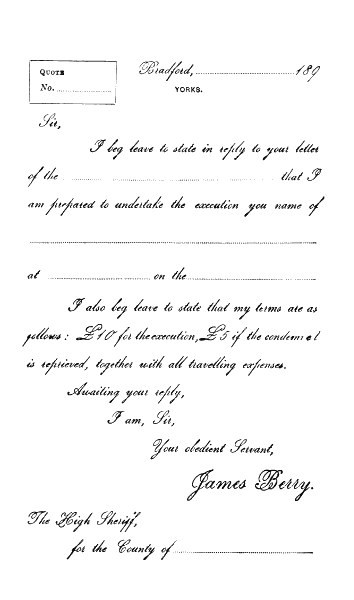 QUOTE
No.
Bradford, 189
YORKS.
Sir,
I beg leave to state in reply to your letter
of the that I
am prepared to undertake the execution you name of
at on the
I also beg leave to state that my terms are as
follows: £10 for the execution, £5 if the condemned
is reprieved, together with all travelling expenses.
Awaiting your reply,
I am, Sir,
Your obedient Servant,
James Berry.
The High Sheriff,
for the County of